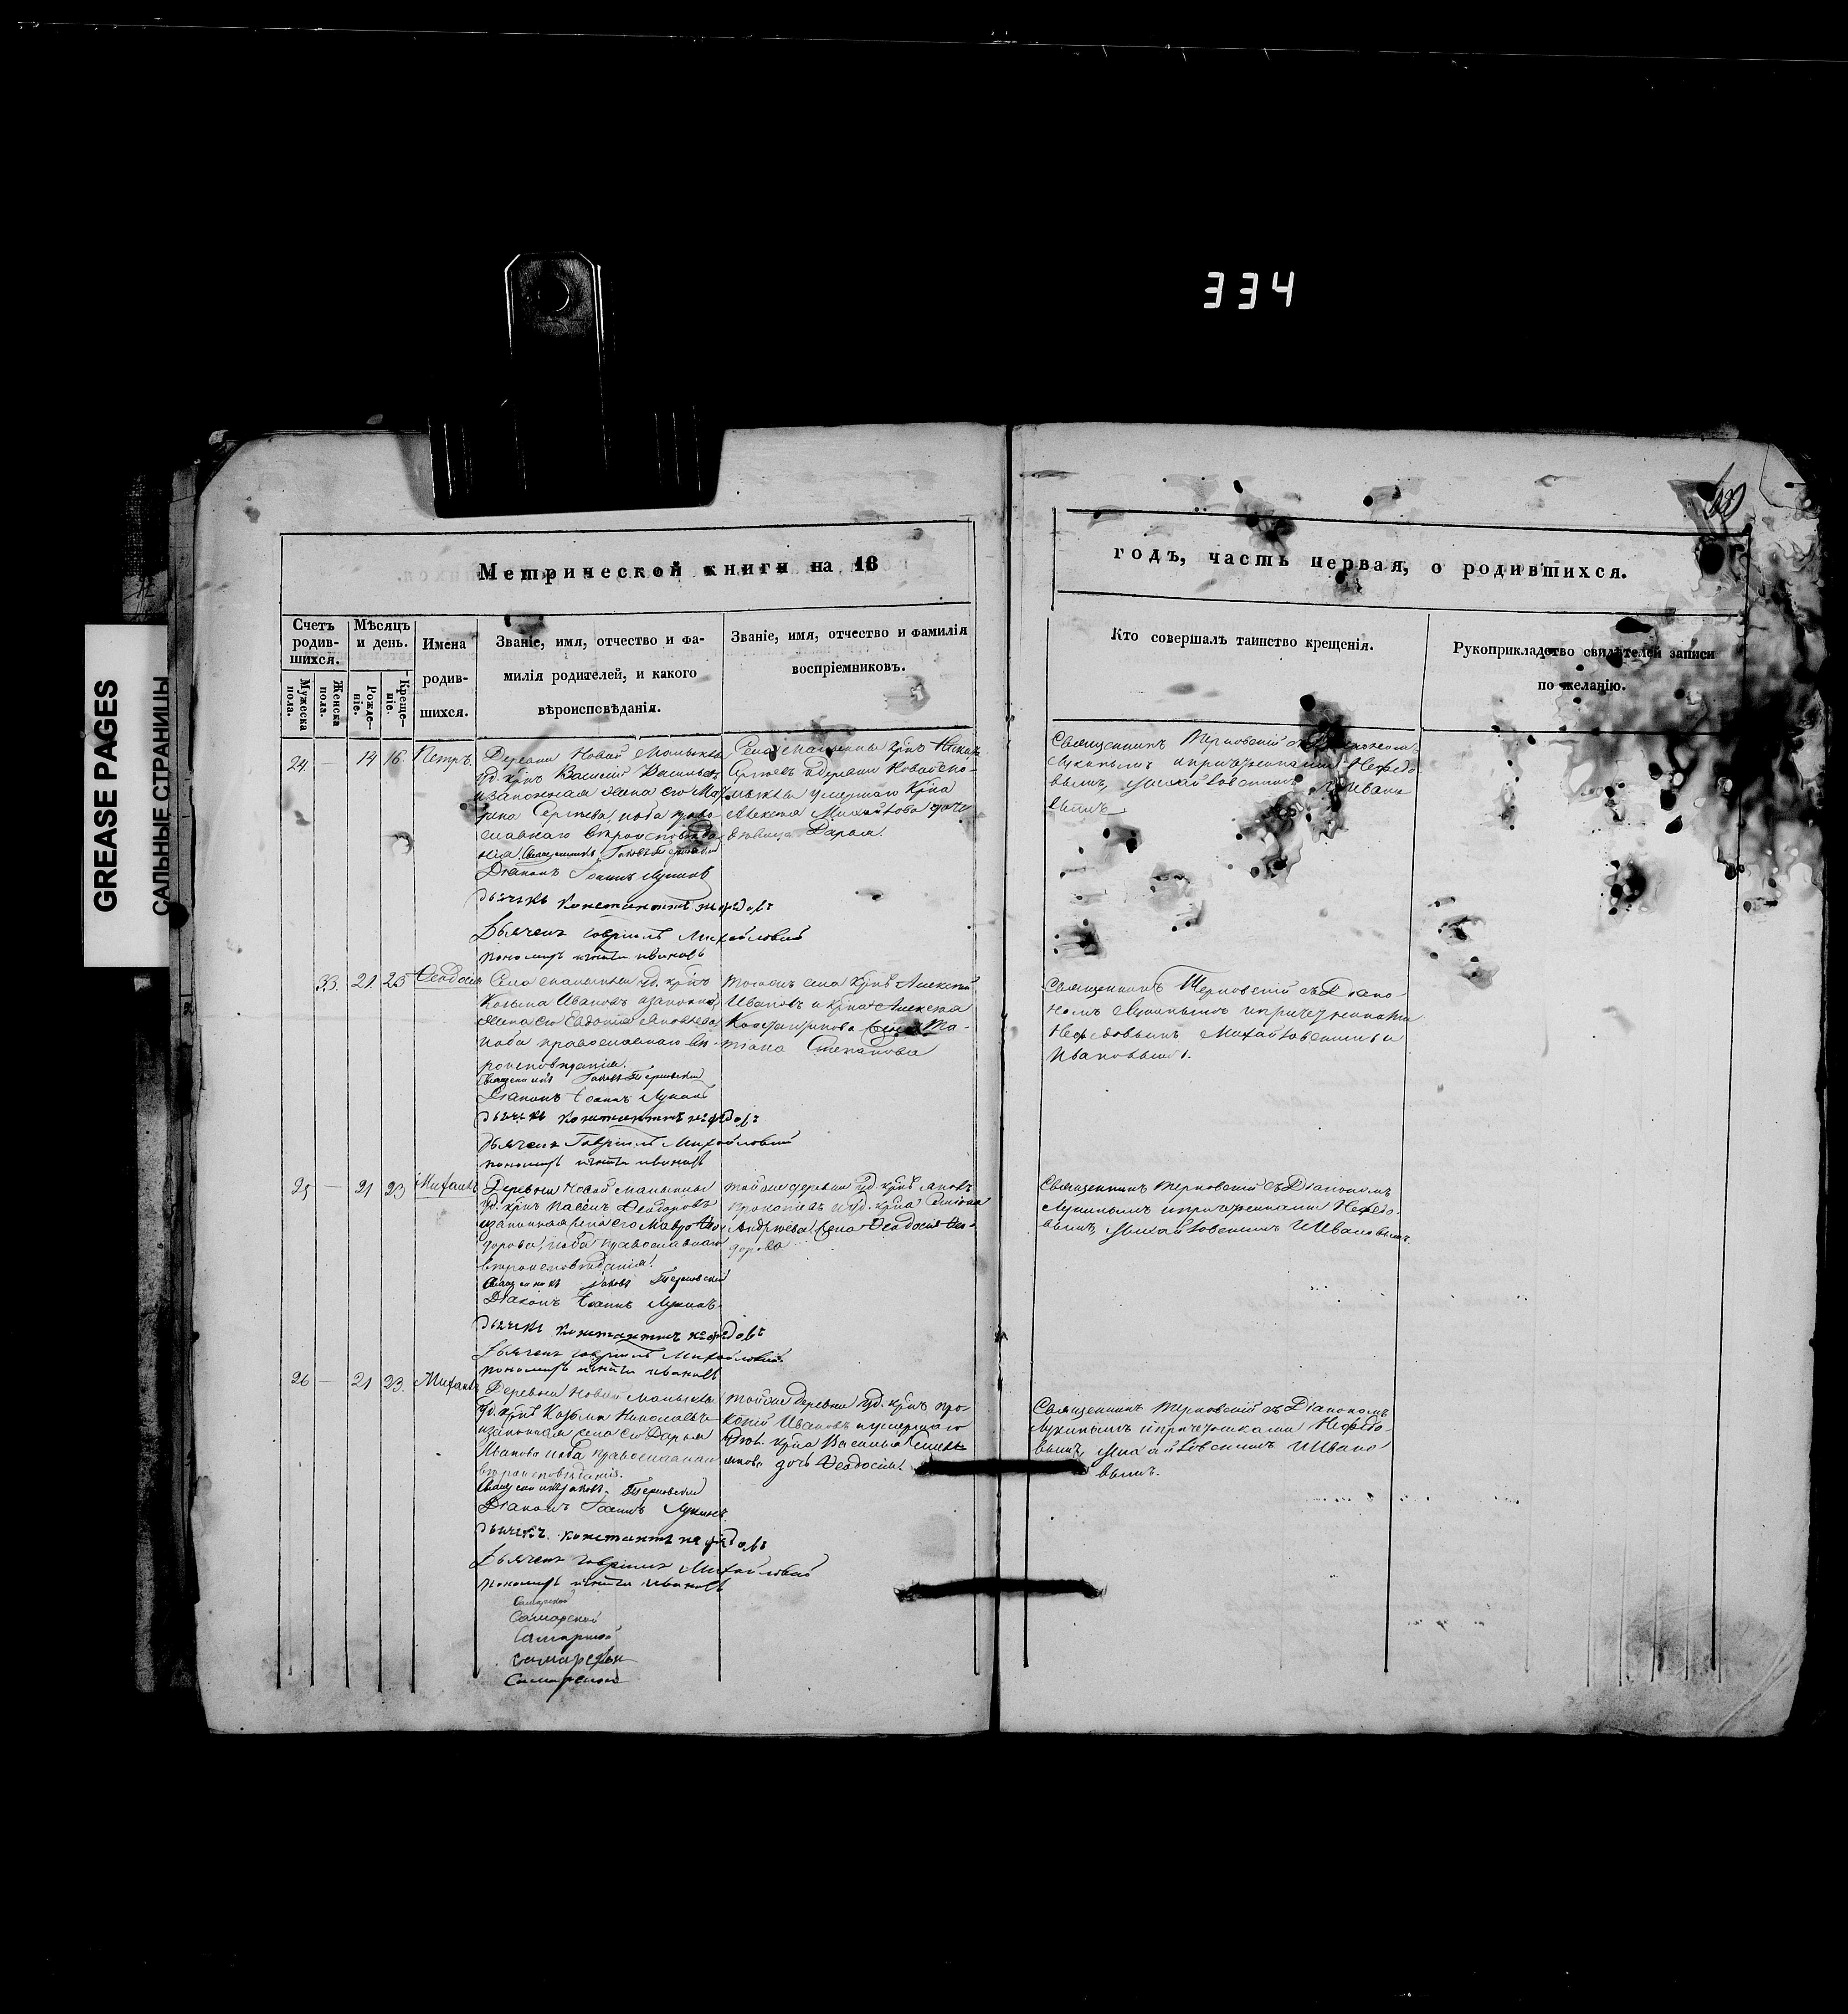 334
GREASE PAGES
САЛЬНЫЕ СТРАНИЦЫ
Метрической книги на 18
годъ, часть первая, о родившихся.
Счетъ родив-шихся.
Мужеска пола.
Женска пола.
Мѣсяцъ и день.
Рожде-ніе.
Креще-ніе.
Имена
родив-
шихся.
Званіе, имя, отчество и фа-
милія родителей, и какого
вѣроисповѣданія.
Званіе, имя, отчество и фамилія
воспріемниковъ.
Кто совершалъ таинство крещенія.
Рукоприкладство свидѣтелей записи
по желанію.
24. — 14 16. Петръ.
Деревни Новой Малыклы
Уд. крнъ Василій Васильевъ
и законная жена его
Сергѣева, оба право-
славнаго вѣроисповѣда
нія. Священникъ Іаковъ Терновскій
Діаконъ Іоаннъ Лукинъ
дьячекъ Константинъ нефедовъ
Дьячекъ Гавріилъ Михайловскій
пономарь ивановъ
Села Малыклы крнъ
Сергѣевъ и деревни Новой
умершаго крна
Алексѣя Михайлова дочь
дѣвица Дарья.
Священникъ Терновскій съ Діакономъ
Лукинымъ и причетниками Нефедо
вымъ, Михайловскимъ и Ивано
вымъ
33. 21. 23 Ѳеодосія
Села Малыклы уд. крнъ
Козьма Ивановъ и законная
жена его Евдокія Яковлева
оба православнаго вѣ-
роисповѣданія.
Священникъ Іаковъ Терновскій
Діаконъ Іоаннъ Лукинъ
дьячекъ Константинъ нефедовъ
дьячекъ Гавріилъ Михайловскій
пономарь ивановъ
тогоже села крнъ Алексѣй
Ивановъ и крна Алексѣя
Константинова жена Та-
тіана Степанова
Священникъ Терновскій съ Діако-
номъ Лукинымъ и причетниками
Нефедовымъ Михайловскимъ и
Ивановымъ.
25 — 21 23 Михаилъ
Деревни Новой Малыклы
Уд. крнъ Павелъ Ѳеодоровъ
и законная жена его Мавра Ѳео
дорова, оба православнаго
вѣроисповѣданія.
Священникъ Іаковъ Терновскій
Діаконъ Іоаннъ Лукинъ.
дьячекъ Константинъ нефедовъ
Дьячекъ Гавріилъ Михайловскій.
пономарь ивановъ
тойже деревни уд. крнъ Яковъ
Прокопіевъ и уд. крна
Андрѣева жена Ѳеодосія Ѳео-
дорова
Священникъ Терновскій съ Діакономъ
Лукинымъ и причетниками Нефедо-
вымъ, Михайловскимъ и Ивановымъ.
26 — 21 23. Михаилъ
Деревни Новой Малыклы
Уд. крнъ Козьма Николаевъ
и законная жена его Дарья
Иванова оба православнаго
вѣроисповѣданія.
Священникъ Іаковъ Терновскій
Діаконъ Іоаннъ Лукинъ.
дьячекъ. Константинъ нефедовъ
Дьячекъ Гавріилъ Михайловскій
пономарь ивановъ
тойже деревни уд. крнъ Про-
копій Ивановъ и умершаго
Уд. крна Василья
дочь Ѳеодосія.
Священникъ Терновскій съ Діакономъ
Лукинымъ и причетниками Нефедо-
вымъ, Михайловскимъ и Ивано
вымъ.
Самарской
Самарской
Самарской
Самарской
Самарской